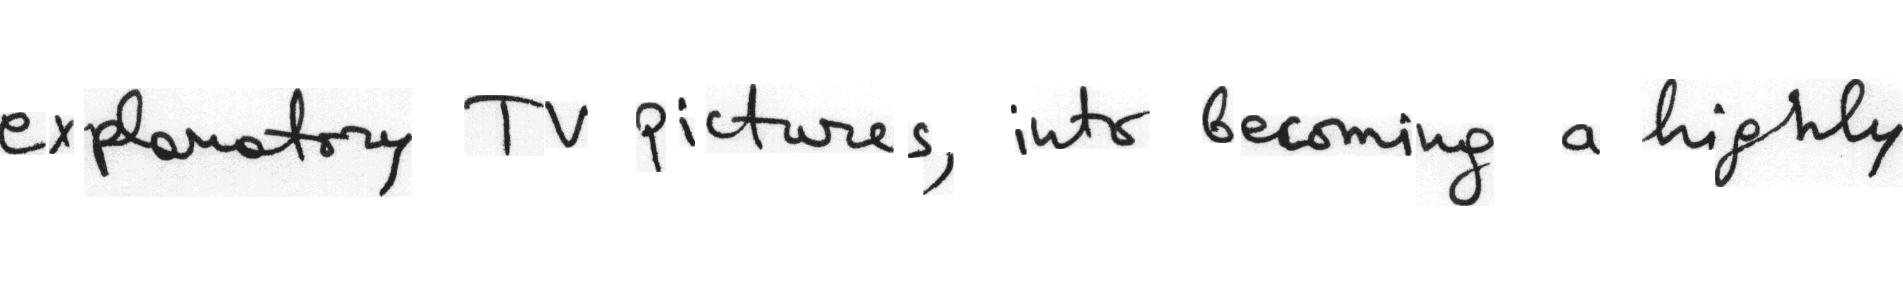 explanatory TV pictures, into becoming a highly